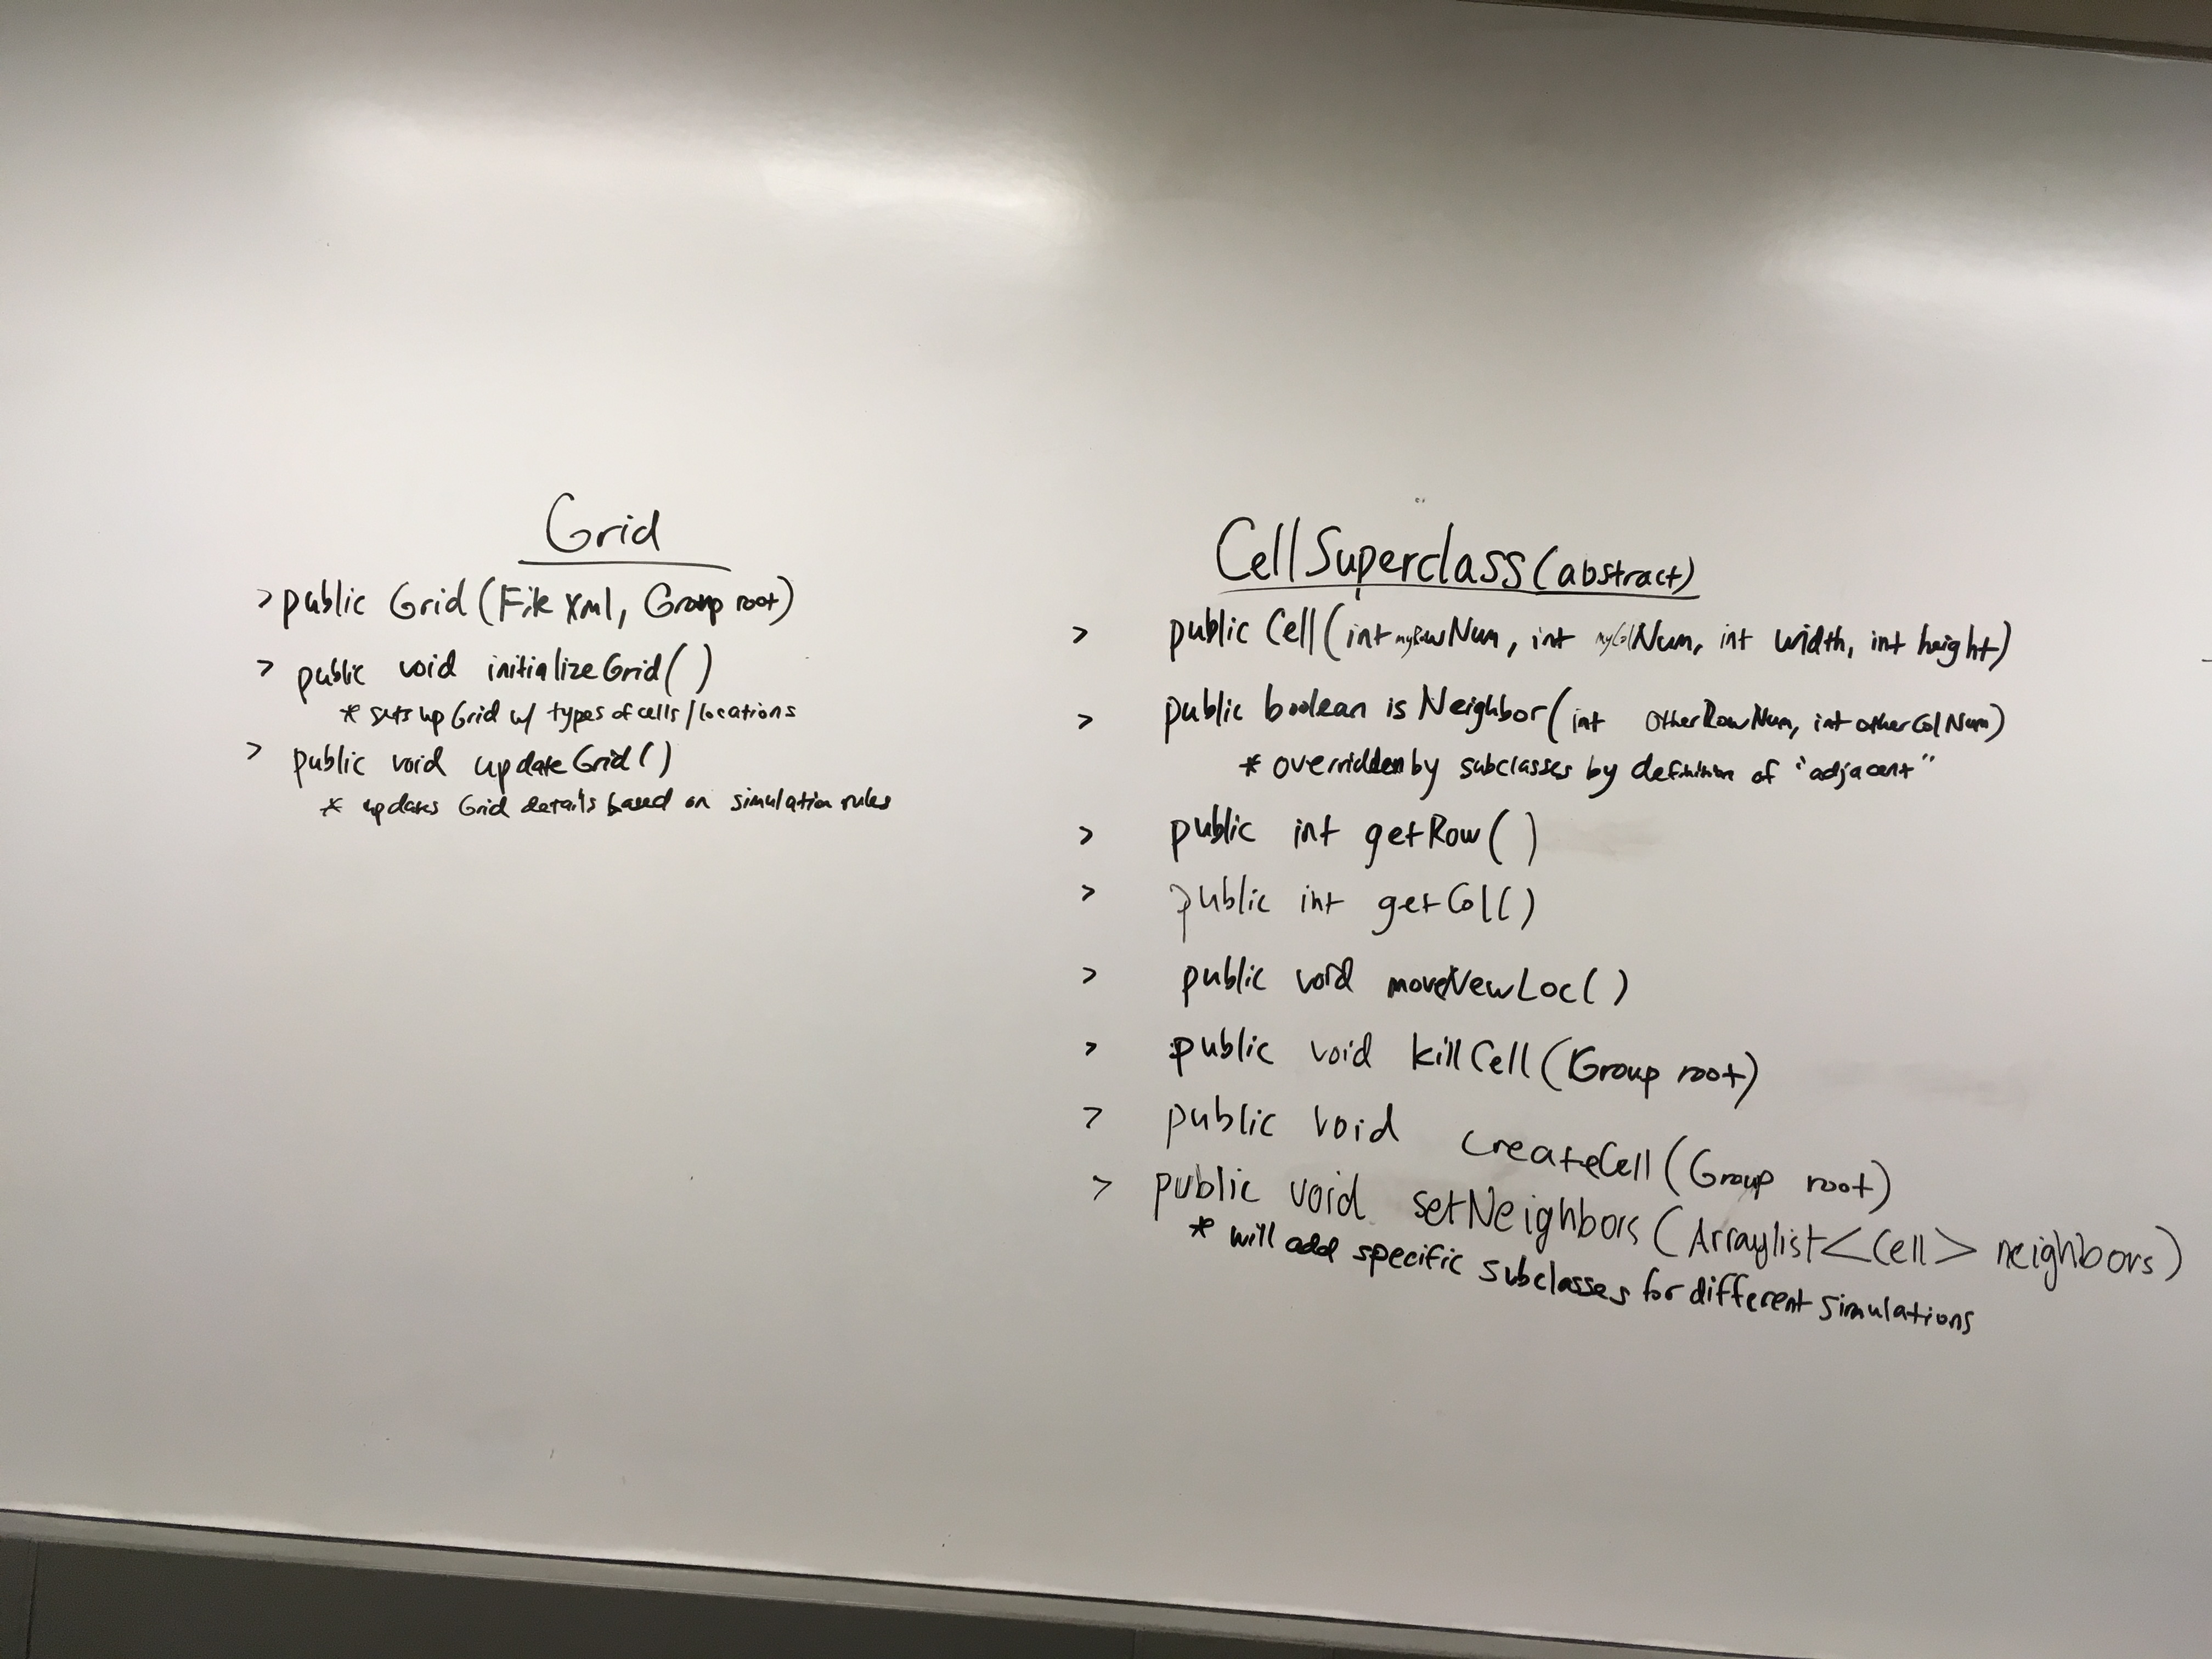 Grid
> public Grid (File xml, Group root)
> public void initializeGrid( )
* sets up Grid w/ types of cells / locations
> public void updateGrid( )
* updates Grid details based on simulation rules
Cell Superclass (abstract)
> public Cell (int myRowNum, int myColNum, int width, int height)
> public boolean isNeighbor (int otherRowNum, int otherColNum)
* overridden by subclasses by definition of "adjacent"
> public int getRow( )
> public int getCol( )
> public void moveNewLoc( )
> public void killCell (Group root)
> public void createCell (Group root)
> public void setNeighbors (Arraylist<Cell> neighbors)
* will add specific subclasses for different simulations